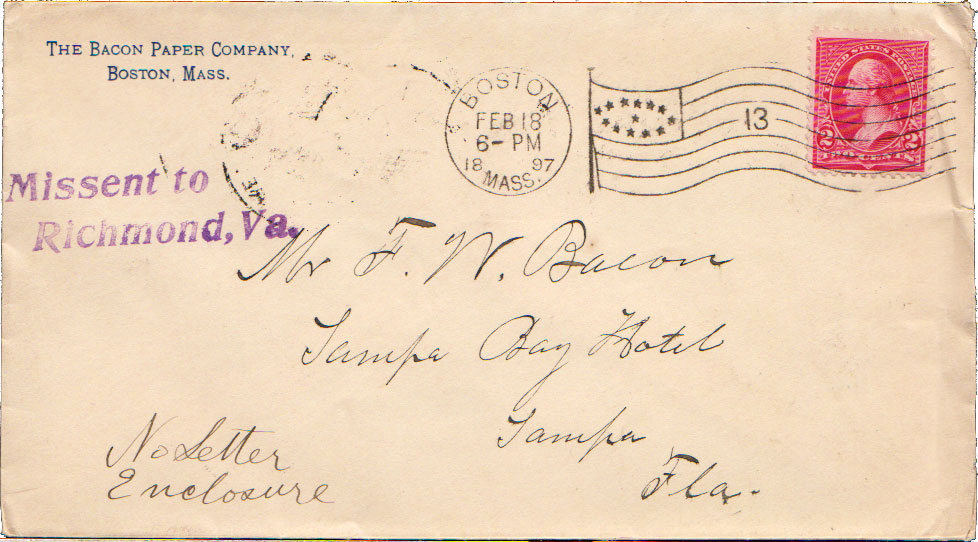 THE BACON PAPER COMPANY,
BOSTON, MASS.
BOSTON
FEB 18
6- PM
18 97
MASS.
13
UNITED STATES POSTAGE
2 2
TWO CENTS
Missent to
Richmond, Va.
Mr F. W. Bacon
Tampa Bay Hotel
Tampa
Fla.
No Letter
Enclosure